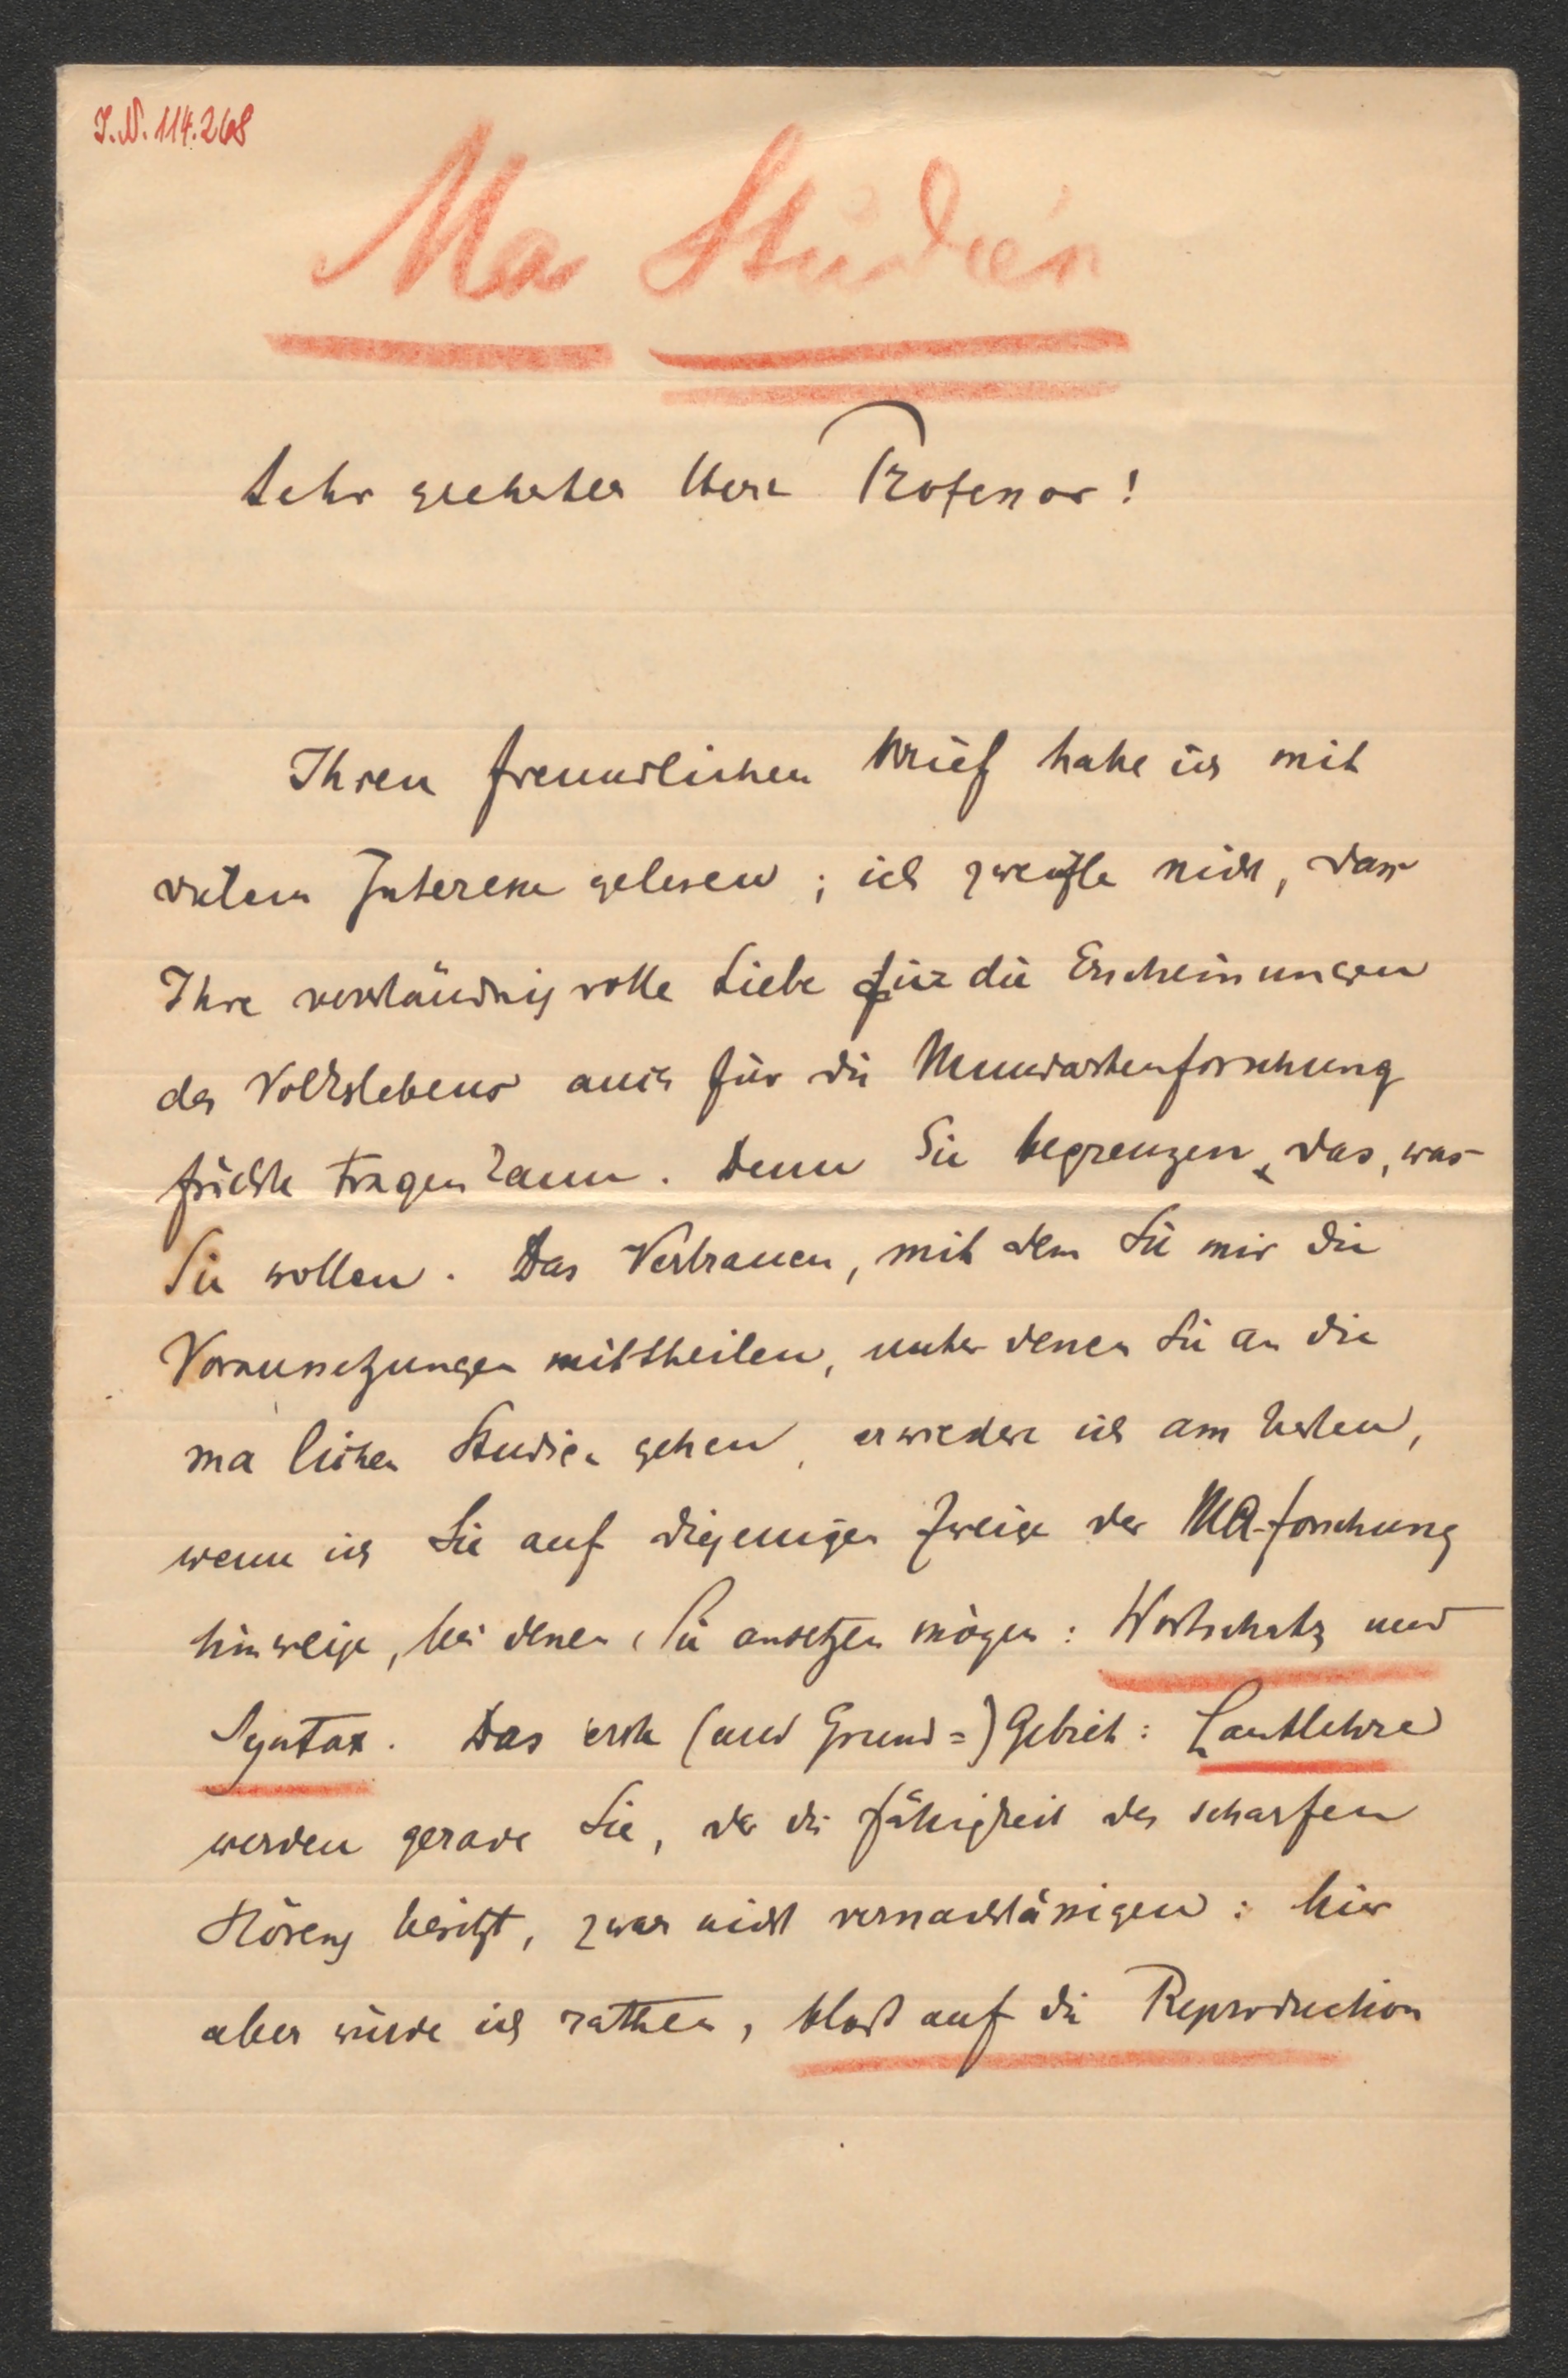 I.N. 114.268
Ma Studien
Sehr geehrter Herr Professor!
Ihren freundlichen Brief habe ich mit
vielem Interesse gelesen; ich zweifle nicht, dass
Ihre verständnisvolle Liebe für die Erscheinungen
des Volkslebens auch für die Mundartenforschung
früchte tragen kann. Denn Sie begrenzen das, was
Sie wollen. Das Vertrauen, mit dem Sie mir die
Voraussetzungen mittheilen, unter denen Sie an die
ma lichen Studien gehen, erwiedere ich am besten,
wenn ich Sie auf diejenigen Zweige der MA-forschung
hinweise, bei denen Sie ansetzen mögen: Wortschatz und
Syntax. Das erste (und Grund=) Gebiet: Lautlehre
werden gerade Sie, der die Fähigkeit des scharfen
Hörens besitzt, zwar nicht vernachlässigen: hier
aber würde ich rathen, bloß auf die Reproduction